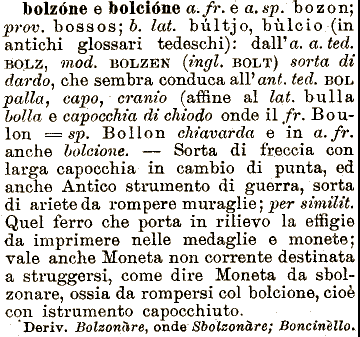 bolzóne e bolcióne a. fr. e a. sp. bozon;
prov. bossos; b. lat. bùltjo, bùlcio (in
antichi glossari tedeschi): dall'a. a. ted.
BOLZ, mod. BOLZEN (ingl. BOLT) sorta di
dardo, che sembra conduca all'ant. ted. BOL
palla, capo, cranio (affine al lat. bulla
bolla e capocchia di chiodo onde il fr. Bou-
lon = sp. Bollon chiavarda e in a. fr.
anche bolcione. — Sorta di freccia con
larga capocchia in cambio di punta, ed
anche Antico strumento di guerra, sorta
di ariete da rompere muraglie; per similit.
Quel ferro che porta in rilievo la effigie
da imprimere nelle medaglie e monete;
vale anche Moneta non corrente destinata
a struggersi, come dire Moneta da sbol-
zonare, ossia da rompersi col bolcione, cioè
con istrumento capocchiuto.
Deriv. Bolzonàre, onde Sbolzonàre; Boncinèllo.